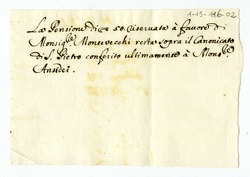 1-13-116-02
La Pensione di 50 riservata à favore di
Monsig.re Montevecchi resta sopra il Canonicato
di S. Pietro conferito ultimamente à Mons.r
Ansidei.